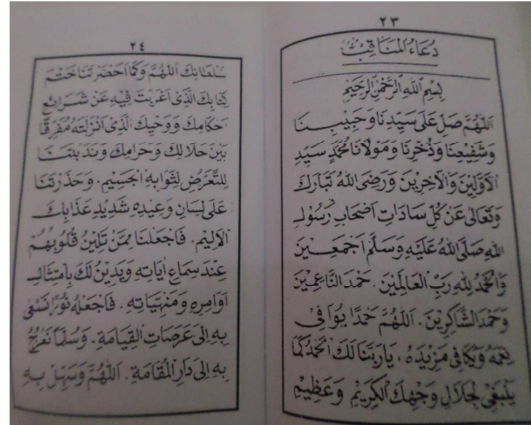 ٢٣
دُعَاءُ الْمَنَاقِبْ
بِسْمِ اللهِ الرَّحْمٰنِ الرَّحِيْمِ
اَللّٰهُمَّ صَلِّ عَلَى سَيِّدِنَا وَحَبِيْبِنَا
وَشَفِيْعِنَا وَذُخْرِنَا وَمَوْلَانَا مُحَمَّدٍ سَيِّدِ
الْاَوَّلِيْنَ وَالْاٰخِرِيْنَ وَرَضِيَ اللهُ تَبَارَكَ
وَتَعَالَى عَنْ كُلِّ سَادَاتِ اَصْحَابِ رَسُوْلِ
اللهِ صَلَّى اللهُ عَلَيْهِ وَسَلَّمَ اَجْمَعِيْنَ
وَالْحَمْدُ لِلّٰهِ رَبِّ الْعَالَمِيْنَ. حَمْدَ النَّاعِمِيْنَ
وَحَمْدَ الشَّاكِرِيْنَ. اَللّٰهُمَّ حَمْدًا يُوَافِيْ
نِعَمَهُ وَيُكَافِئُ مَزِيْدَهُ، يَارَبَّنَا لَكَ الْحَمْدُ كَمَا
يَنْبَغِيْ لِجَلَالِ وَجْهِكَ الْكَرِيْمِ وَعَظِيْمِ
٢٤
سُلْطَانِكَ اَللّٰهُمَّ وَكَمَا اَحْضَرْتَنَا خَتْمَ
كِتَابِكَ الَّذِىْ اَعْرَبْتَ فِيْهِ عَنْ شَرَائِعِ
اَحْكَامِكَ وَوَحْيِكَ الَّذِىْ اَنْزَلْتَهُ مُفَرِّقًا
بَيْنَ حَلَالِكَ وَحَرَامِكَ وَنَدَبْتَنَا
لِلتَّعَرُّضِ لِثَوَابِهِ الْجَسِيْمِ. وَحَذَّرْتَنَا
عَلَى لِسَانِ وَعِيْدِهِ شَدِيْدَ عَذَابِكَ
الْاَلِيْمِ. فَاجْعَلْنَا مِمَّنْ تَلِيْنُ قُلُوْبُهُمْ
عِنْدَ سِمَاعِ اٰيَاتِهِ وَيَدِيْنُ لَكَ بِامْتِثَالِ
اَوَامِرِهِ وَمَنْهِيَّاتِهِ. فَاجْعَلْهُ نُوْرًا نَسْعَى
بِهِ اِلَى عَرَصَاتِ الْقِيَامَةِ. وَسُلَّمًا نَعْرُجُ
بِهِ اِلَى دَارِ الْمُقَامَةِ. اَللّٰهُمَّ وَسَهِّلْ بِهِ